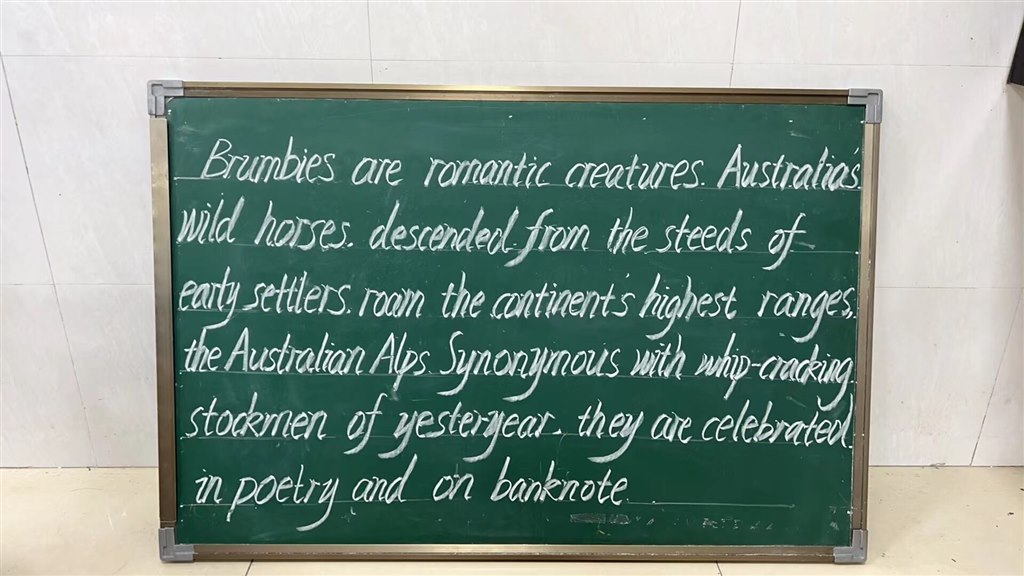 Brumbies are romantic creatures. Australia's
wild horses. descended from the steeds of
early settlers. roam the continent's highest ranges.
the Australian Alps Synonymous with whip-cracking
stockmen of yesteryear. they are celebrated
in poetry and on banknote